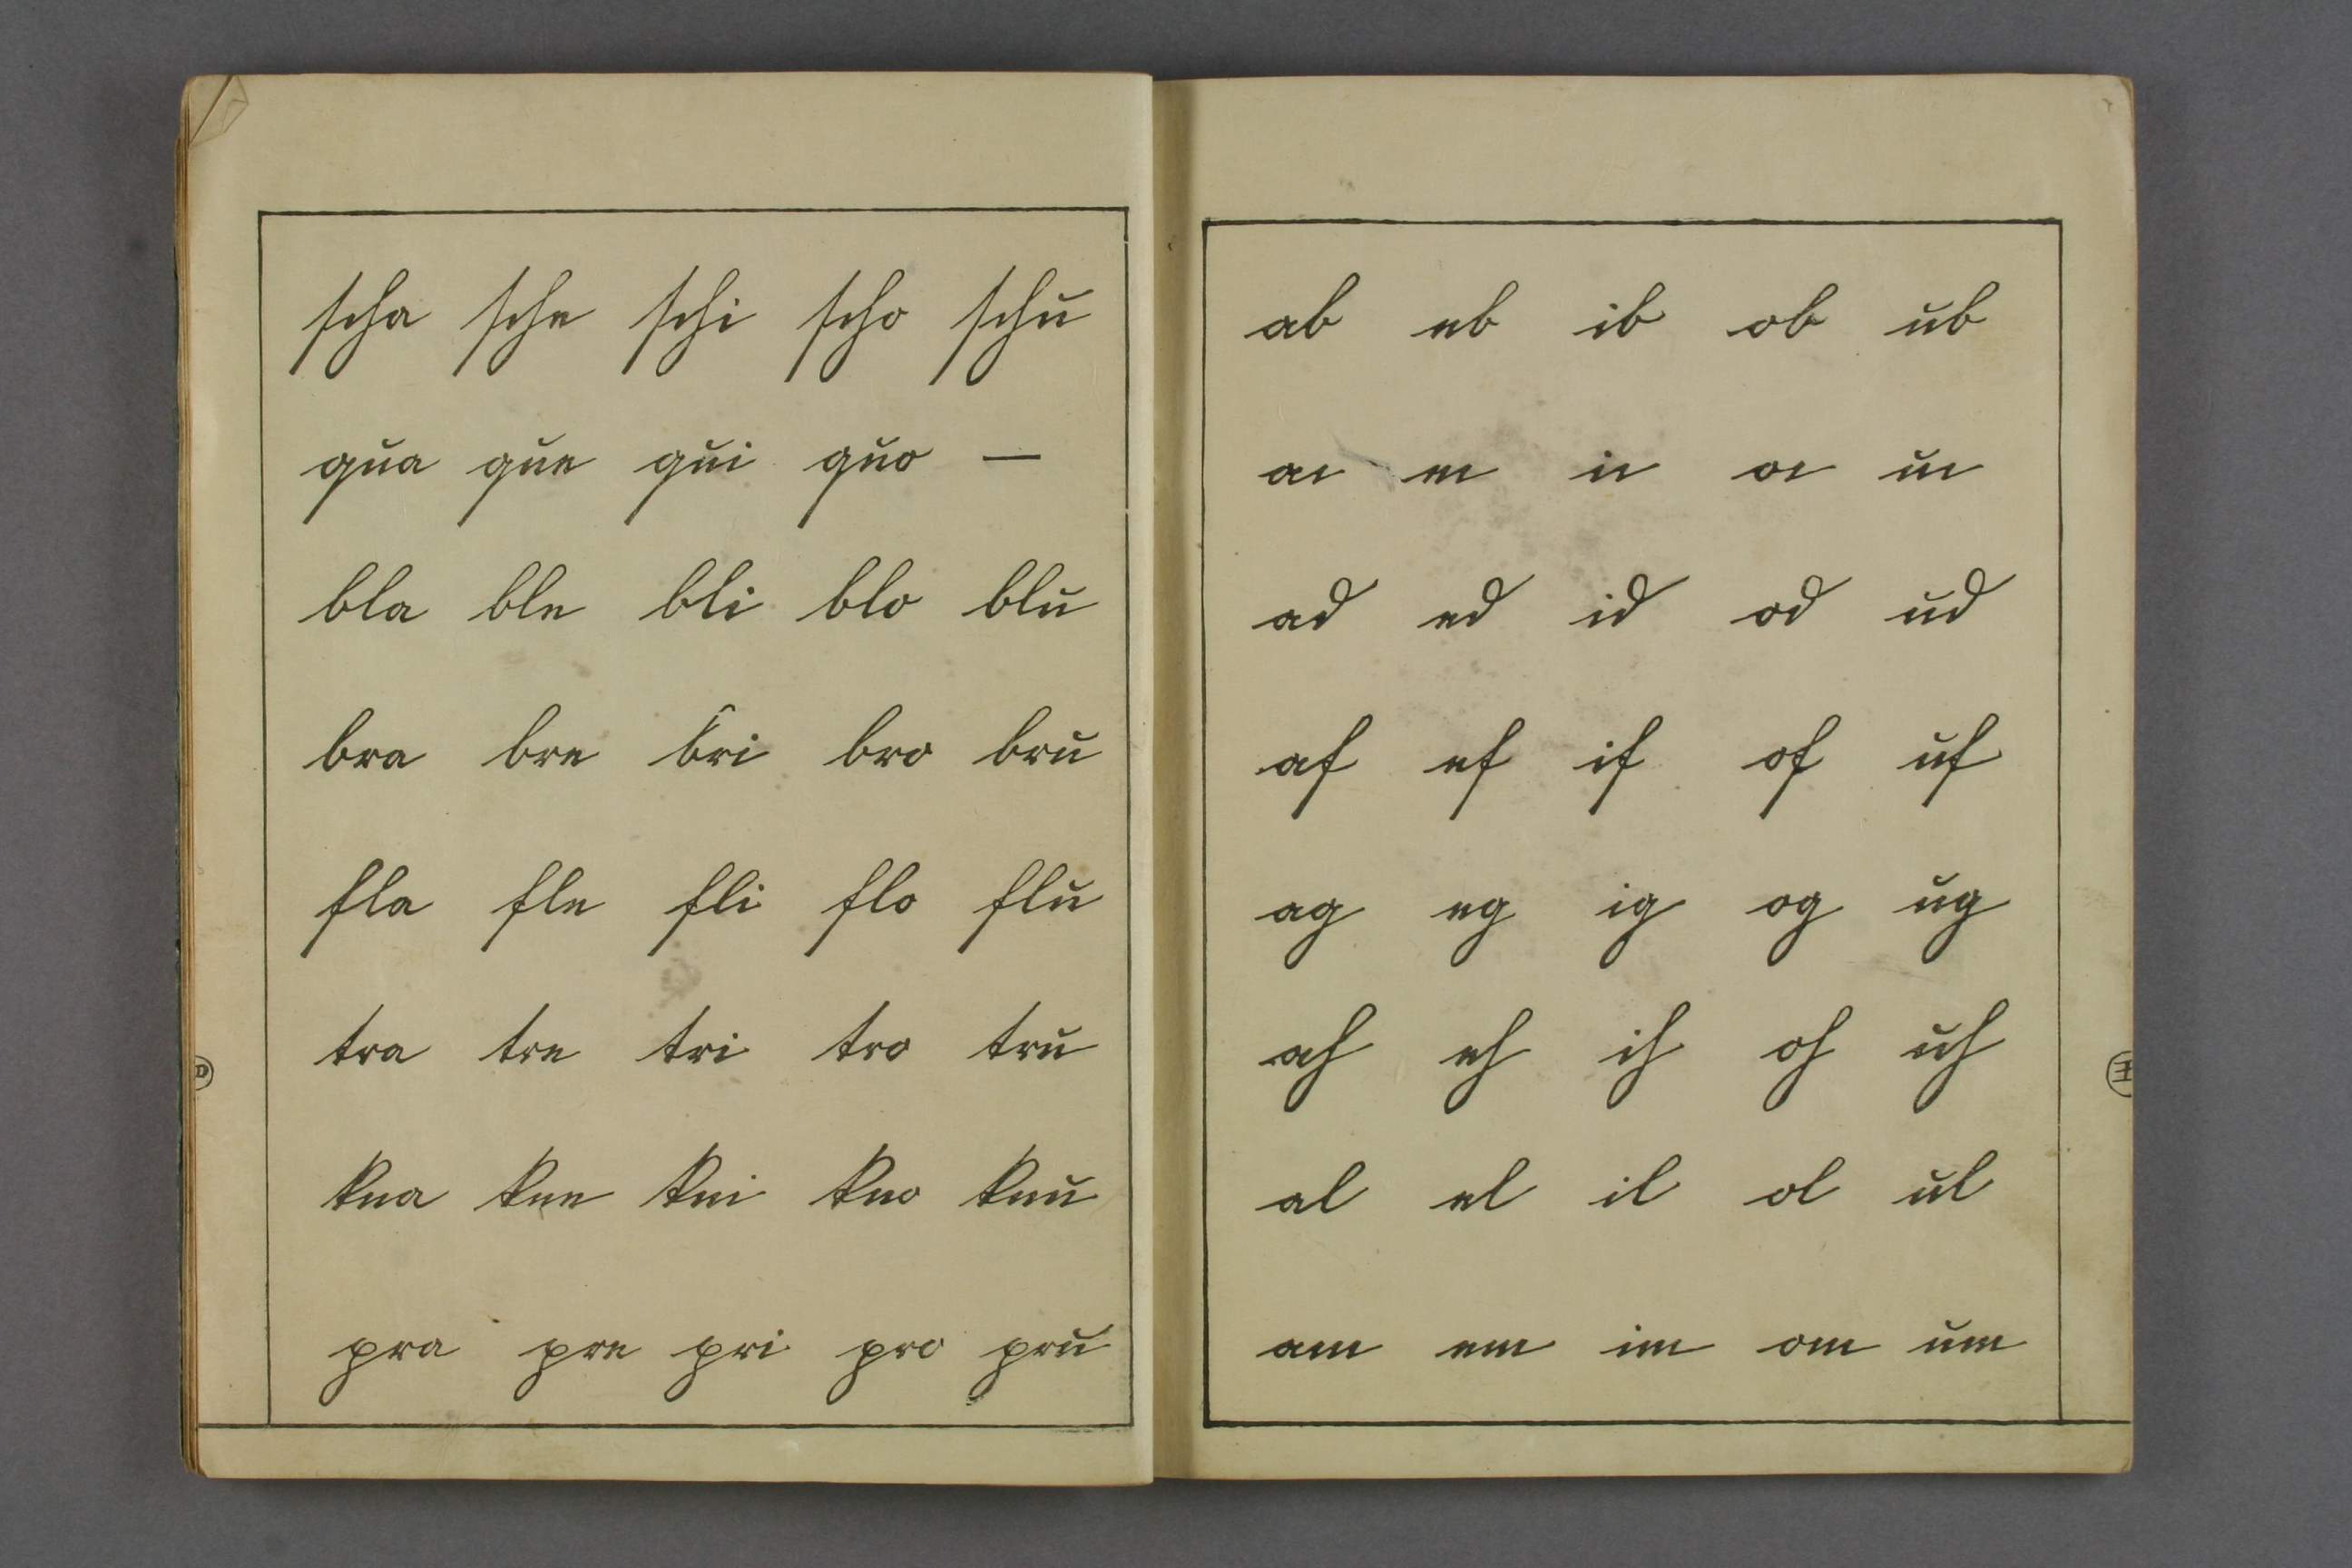 scha sche schi scho schu
qua que qui quo —
bla ble bli blo blu
bra bre bri bro bru
fla fle fli flo flu
tra tre tri tro tru
kna kne kni kno knu
pra pre pri pro pru
ab eb ib ob ub
ac ec ic oc uc
ad ed id od ud
af ef if of uf
ag eg ig og ug
ah eh ih oh uh
al el il ol ul
am em im om um